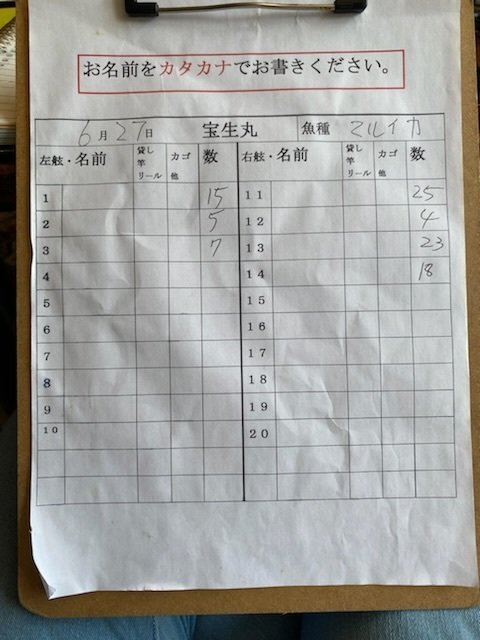 お名前をカタカナでお書きください。
6月27日 宝生丸 魚種 マルイカ
左舷・名前 貸し竿リール カゴ他 数 右舷・名前 貸し竿リール カゴ他 数
1 15 11 25
2 5 12 4
3 7 13 23
4 14 18
5 15
6 16
7 17
8 18
9 19
10 20